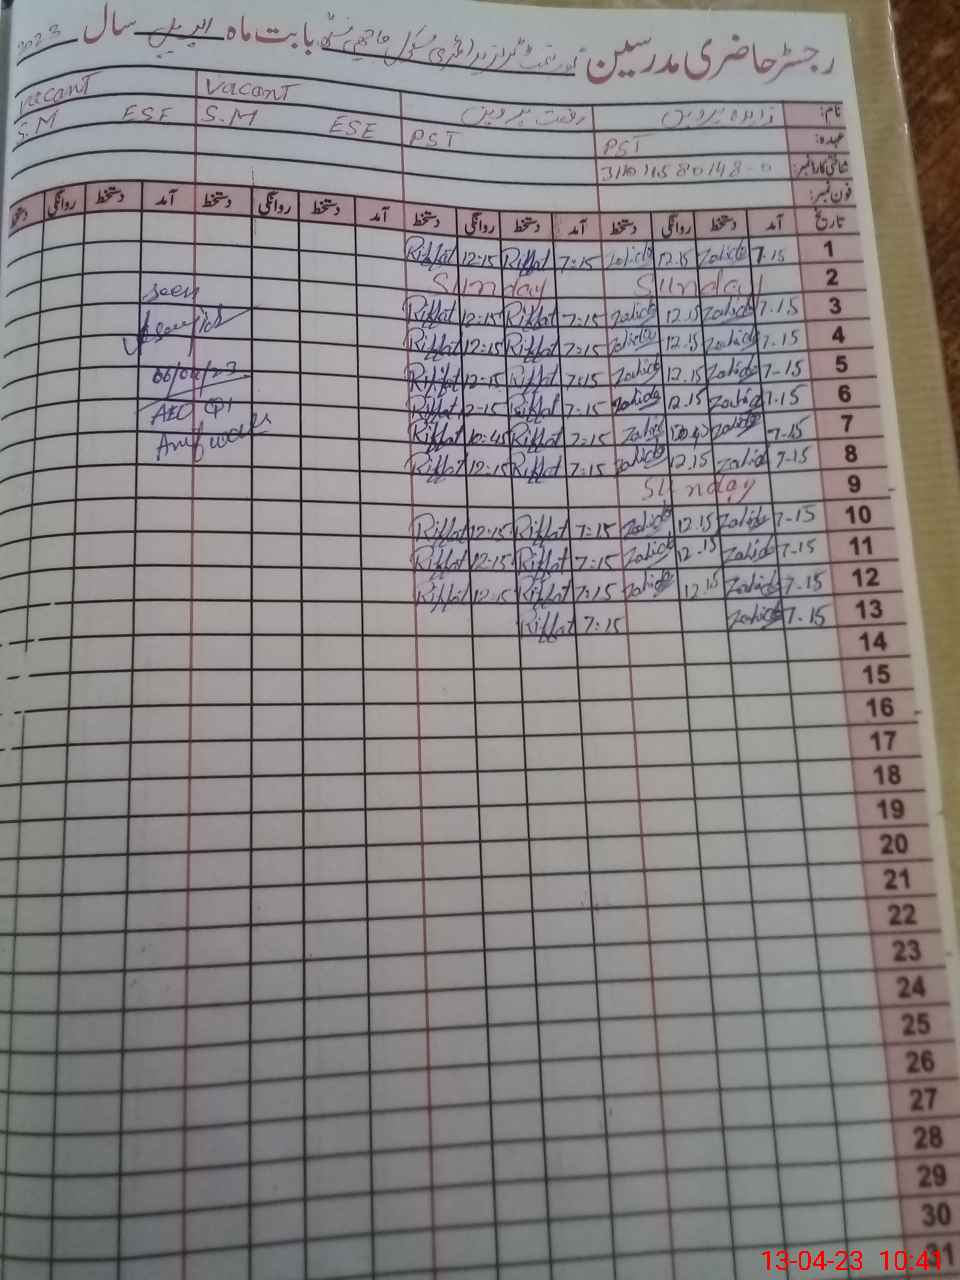 رجسٹر حاضری مدرسین گورنمنٹ پرائمری سکول بابت ماہ اپریل سال 2023
نام: زاہدہ پروین رفعت پروین Vacant Vacant
عہدہ: PST PST S.M ESE S.M ESE
شناختی کارڈ نمبر:
فون نمبر:
تاریخ آمد دستخط روانگی دستخط آمد دستخط روانگی دستخط آمد دستخط روانگی دستخط آمد دستخط روانگی دستخط
1 7.15 Zahida 12.15 Zahida 7:15 Riffat 12:15 Riffat
2 Sunday Sunday
3 7.15 Zahida 12.15 Zahida 7:15 Riffat 12:15 Riffat seen
4 7.15 Zahida 12.15 Zahida 7:15 Riffat 12:15 Riffat
5 7-15 Zahida 12.15 Zahida 7:15 Riffat 12-15 Riffat 06/04/23
6 7.15 Zahida 12.15 Zahida 7.15 Riffat 12-15 Riffat AEO
7 7-15 Zahida Zahida 7:15 Riffat 10:45 Riffat
8 7-15 Zahida 12.15 Zahida 7:15 Riffat 12:15 Riffat
9 Sunday
10 7-15 Zahida 12.15 Zahida 7:15 Riffat 12-15 Riffat
11 7-15 Zahida 12-15 Zahida 7:15 Riffat 12-15 Riffat
12 7-15 Zahida 12.15 Zahida 7:15 Riffat 12:15 Riffat
13 7.15 Zahida 7:15 Riffat
14
15
16
17
18
19
20
21
22
23
24
25
26
27
28
29
30
31
13-04-23 10:41